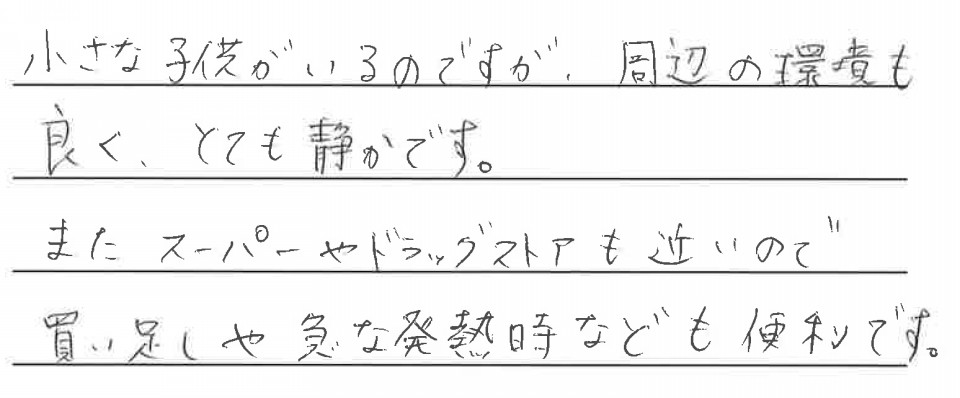 小さな子供がいるのですが、周辺の環境も
良く、とても静かです。
またスーパーやドラッグストアも近いので
買い足しや急な発熱時なども便利です。